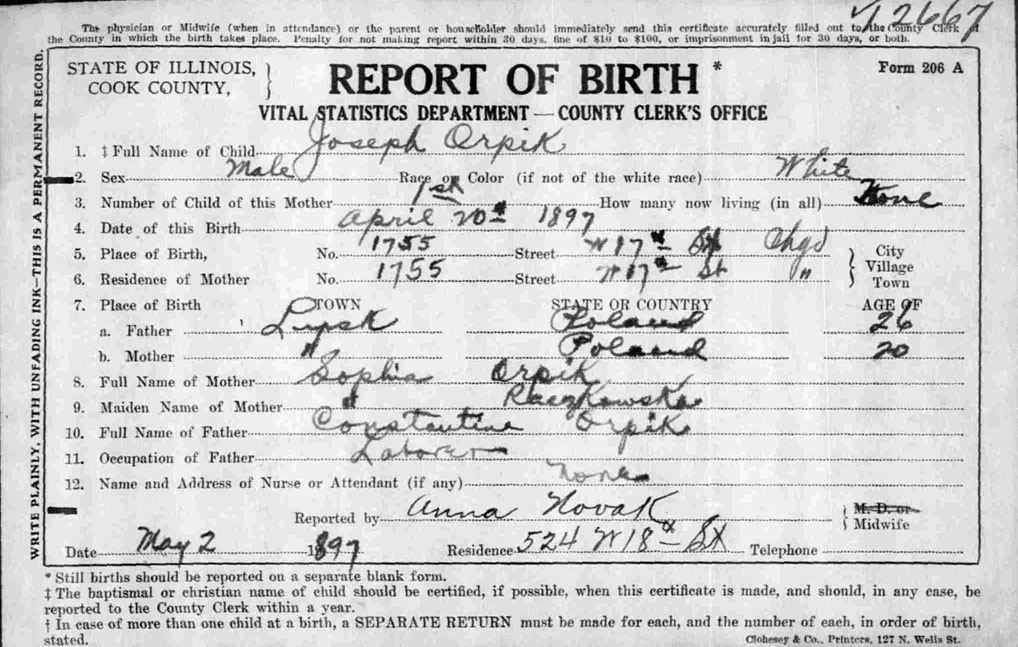 12667
The physician or Midwife (when in attendance) or the parent or householder should immediately send this certificate accurately filled out to the County Clerk of
the County in which the birth takes place. Penalty for not making report within 30 days, fine of $10 to $100, or imprisonment in jail for 30 days, or both.
WRITE PLAINLY, WITH UNFADING INK—THIS IS A PERMANENT RECORD.
STATE OF ILLINOIS, COOK COUNTY,
REPORT OF BIRTH *
Form 206 A
VITAL STATISTICS DEPARTMENT — COUNTY CLERK'S OFFICE
1. ‡ Full Name of Child Joseph Orpik
2. Sex Male Race or Color (if not of the white race) White
3. Number of Child of this Mother 1st How many now living (in all)
4. Date of this Birth April 20th 1897
5. Place of Birth, No. 1755 Street W 17th St Chgo City
6. Residence of Mother No. 1755 Street W 17th St " Village Town
7. Place of Birth TOWN STATE OR COUNTRY AGE OF
a. Father Lipsk Poland 26
b. Mother " Poland 20
8. Full Name of Mother Sophia Orpik
9. Maiden Name of Mother " Raczkowska
10. Full Name of Father Constantine Orpik
11. Occupation of Father Laborer
12. Name and Address of Nurse or Attendant (if any) None
Reported by Anna Novak M. D. or Midwife
Date May 2 1897 Residence 524 W 18th St Telephone
* Still births should be reported on a separate blank form.
‡ The baptismal or christian name of child should be certified, if possible, when this certificate is made, and should, in any case, be
reported to the County Clerk within a year.
† In case of more than one child at a birth, a SEPARATE RETURN must be made for each, and the number of each, in order of birth,
stated.
Clohesey & Co., Printers, 127 N. Wells St.